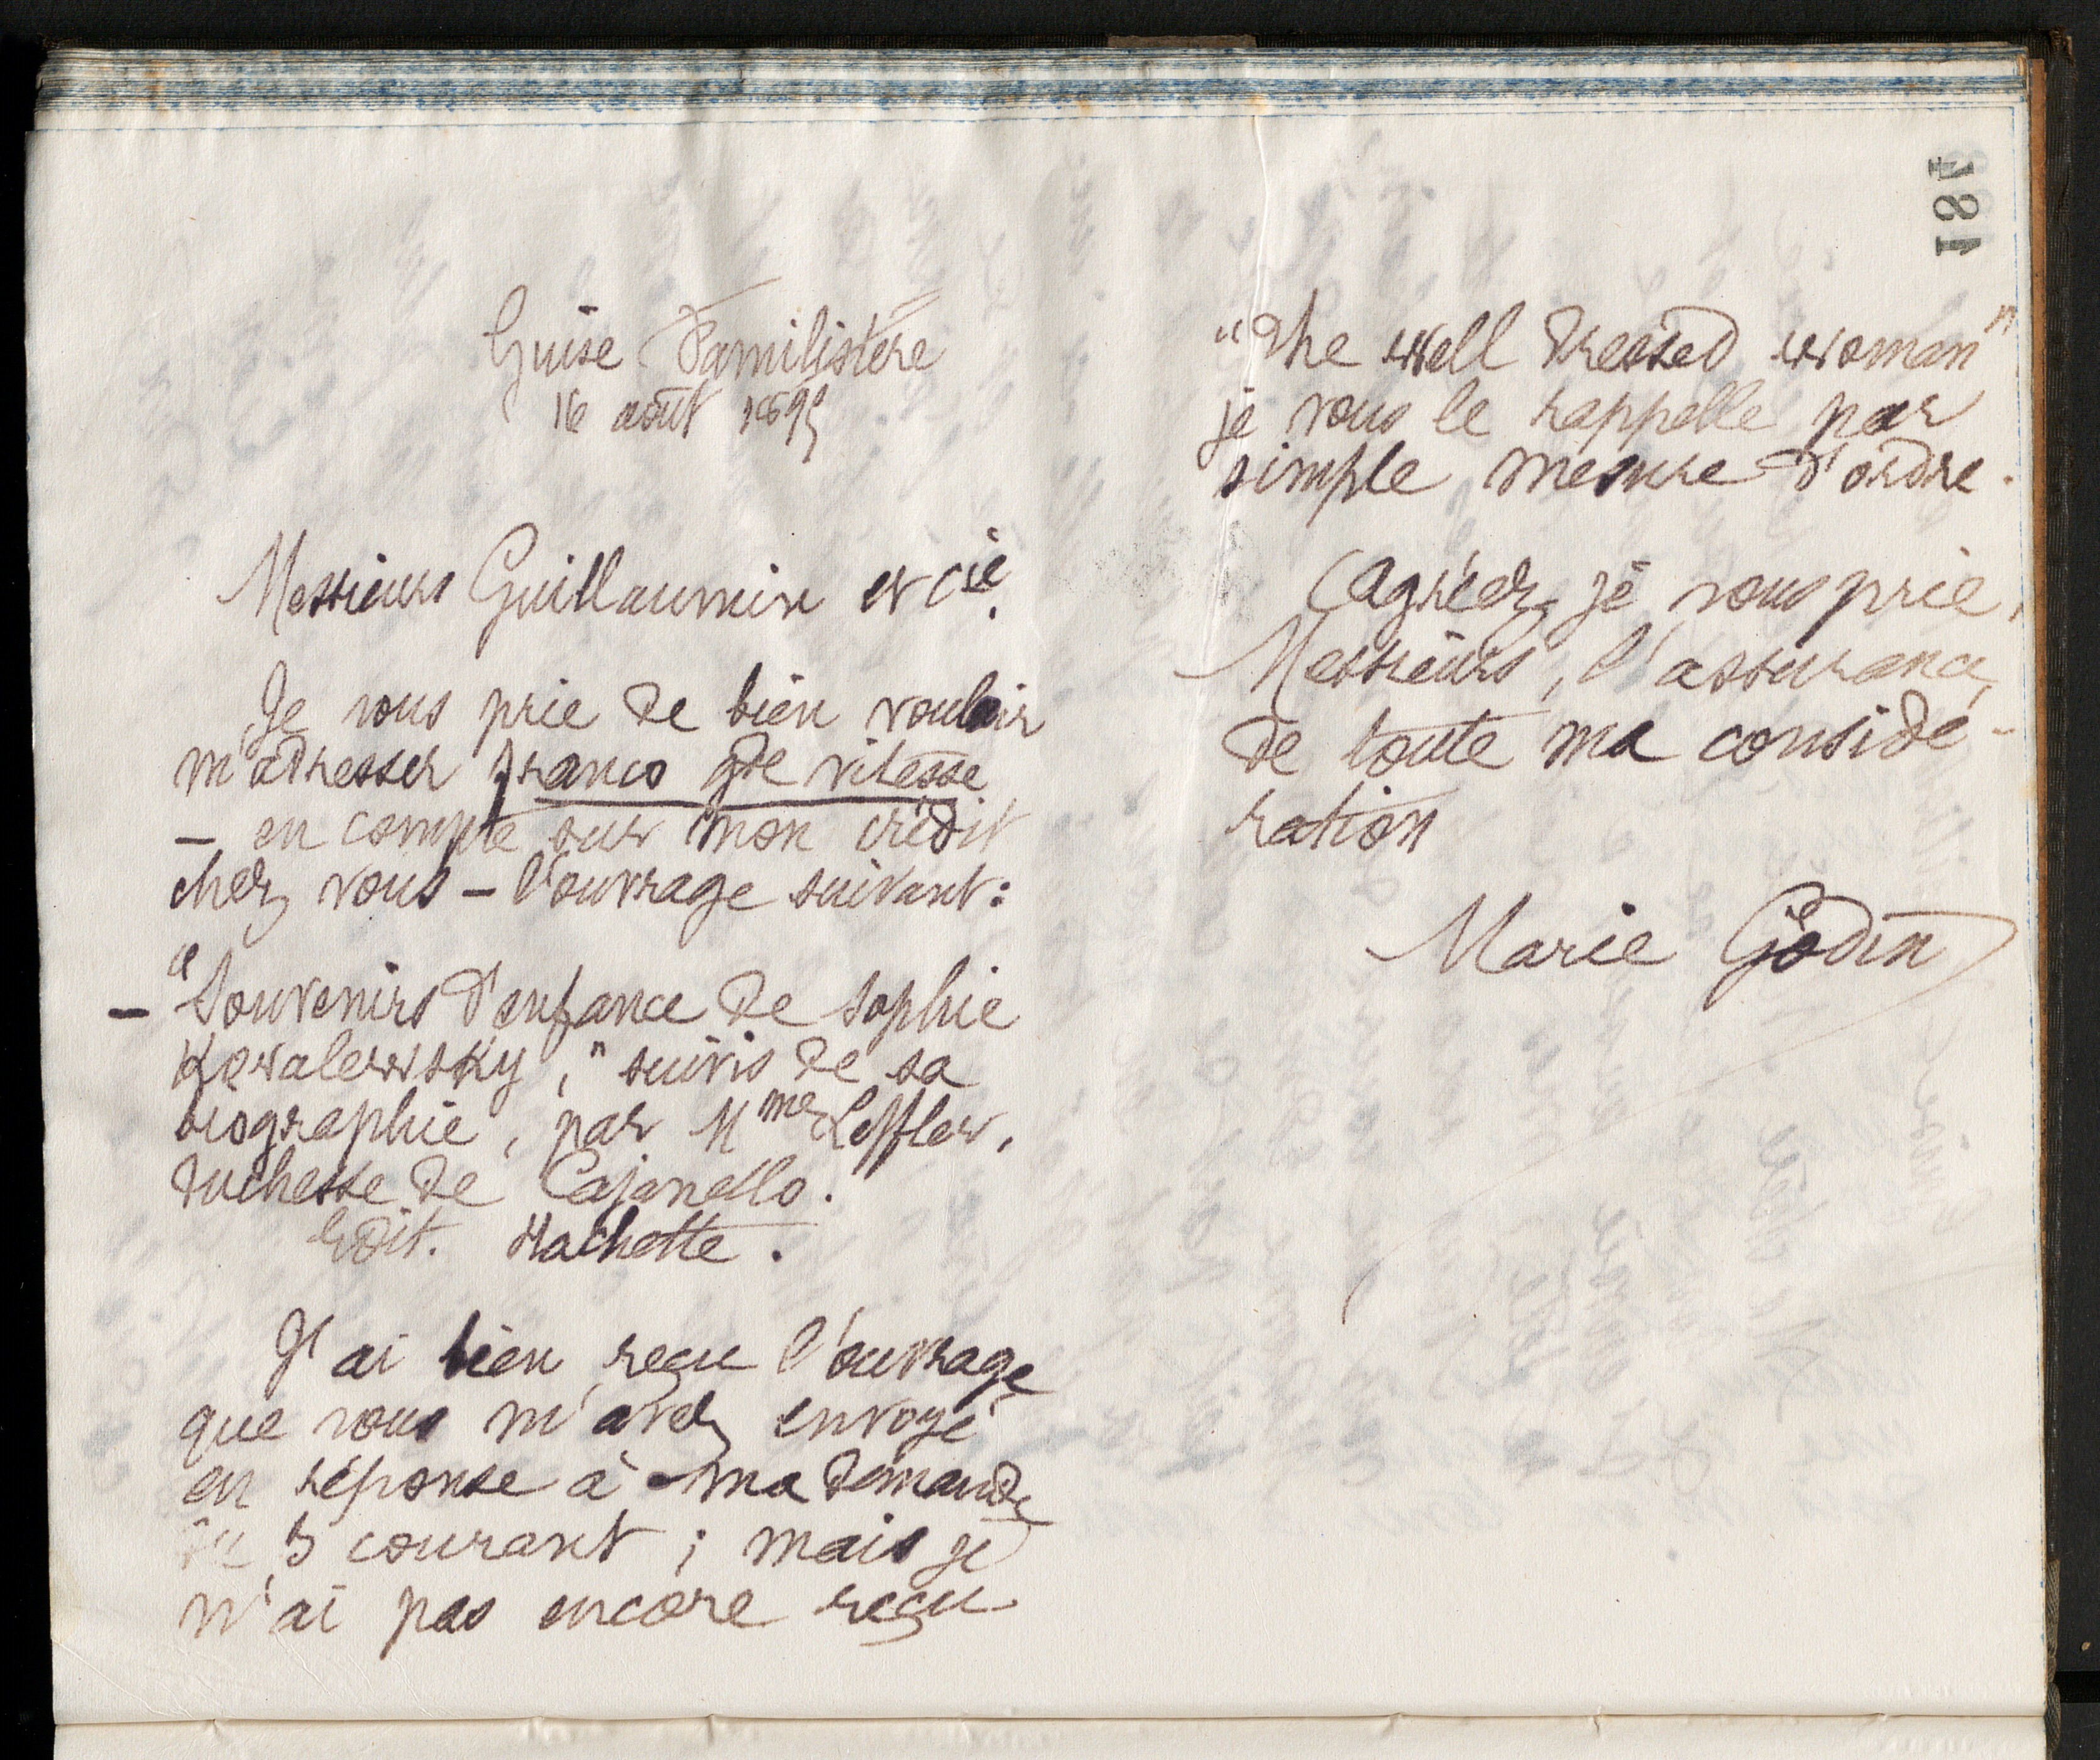 187
Guise Familistère
16 août 1895
Messieurs Guillaumin et cie.
Je vous prie de bien vouloir
m'adresser franco gde vitesse
– en compte sur mon crédit
chez vous – l'ouvrage suivant :
– "Souvenirs d'enfance de Sophie
Kovalewsky," suivis de sa
biographie, par Mme Leffler,
duchesse de Cajanello.
Edit. Hachette.
J'ai bien reçu l'ouvrage
que vous m'avez envoyé
en réponse à ma demande
du 5 courant ; mais je
n'ai pas encore reçu
"The well dressed woman"
je vous le rappelle par
simple mesure d'ordre.
Agréez, je vous prie,
Messieurs, l'assurance
de toute ma considé-
ration
Marie Godin